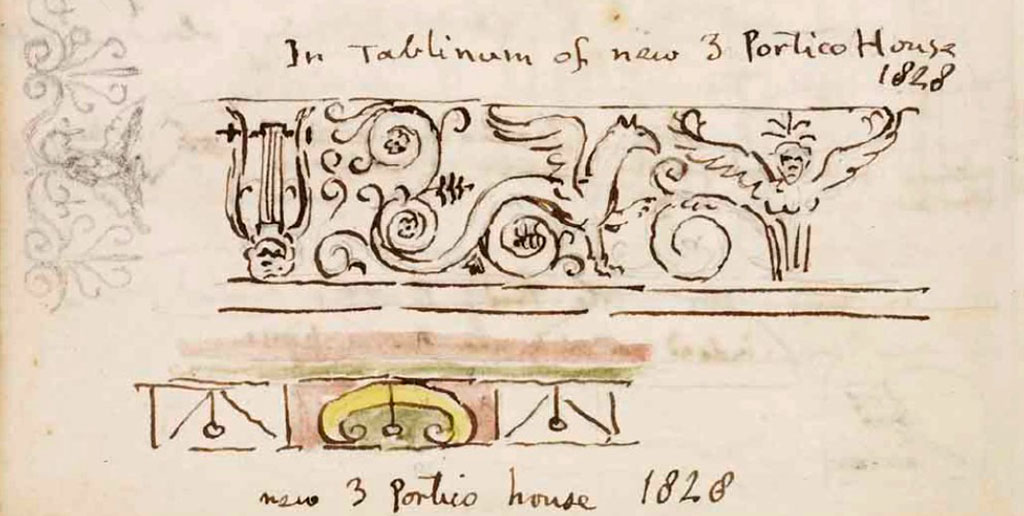 In Tablinum of new 3 Portico House
1828
new 3 Portico house 1828